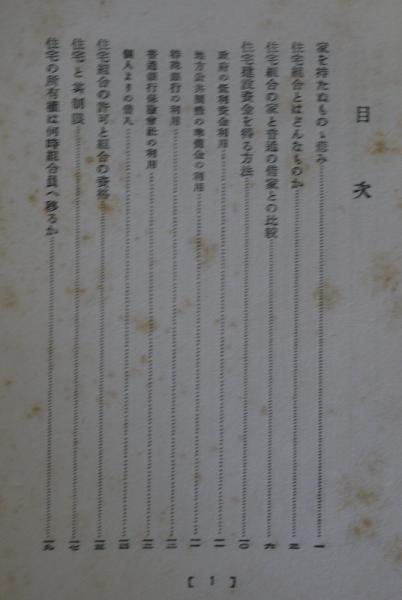 目次
家を持たぬものゝ悲み……一
住宅組合とはどんなものか……三
住宅組合の家と普通の借家との比較……六
住宅建設資金を得る方法……一〇
政府の低利資金利用……一一
地方公共團體の準備金の利用……一一
特殊銀行の利用……一二
普通銀行保險會社の利用……一三
個人よりの借入……一四
住宅組合の許可と組合の資格……一五
住宅と其制限……一七
住宅の所有權は何時組合員へ移るか……一九
[1]